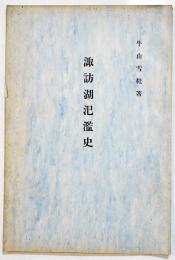 牛山雪鞋著
諏訪湖氾濫史